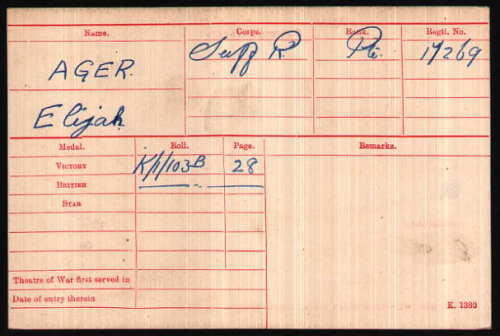 Name.
Corps.
Rank.
Regtl. No.
AGER.
Suff R
Pte.
17269
Elijah
Medal.
Roll.
Page.
Remarks.
Victory
K/1/103B
28
British
Star
Theatre of War first served in
Date of entry therein
K. 1380